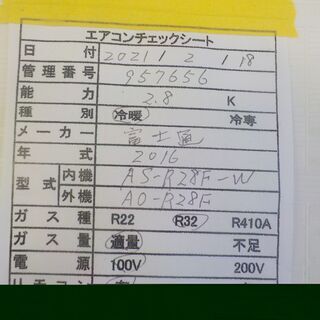 エアコンチェックシート
日付 2021 / 2 / 18
管理番号 957656
能力 2.8 K
種別 冷暖 冷専
メーカー 富士通
年式 2016
型式 内機 AS-R28F-W
外機 AO-R28F
ガス種 R22 R32 R410A
ガス量 適量 不足
電源 100V 200V
リモコン 有